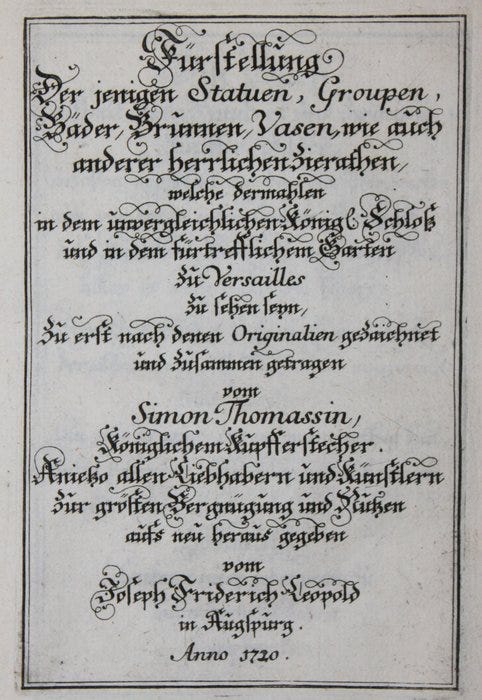 Fürstellung
Der jenigen Statuen, Groupen,
Bäder, Brunnen, Vasen, wie auch
anderer herrlichen Zierathen,
welche dermahlen
in dem unvergleichlichen Königl. Schloß
und in dem fürtrefflichem Garten
Zu Versailles
Zu sehen seyn,
Zu erst nach denen Originalien gezaichnet
und Zusammen getragen
vom
Simon Thomassin,
Königlichem Kupfferstecher.
Anietzo allen Liebhabern und Künstlern
Zur grösten Vergnügung und Nutzen
aufs neu heraus gegeben
vom
Joseph Friderich Leopold
in Augspurg.
Anno 1720.